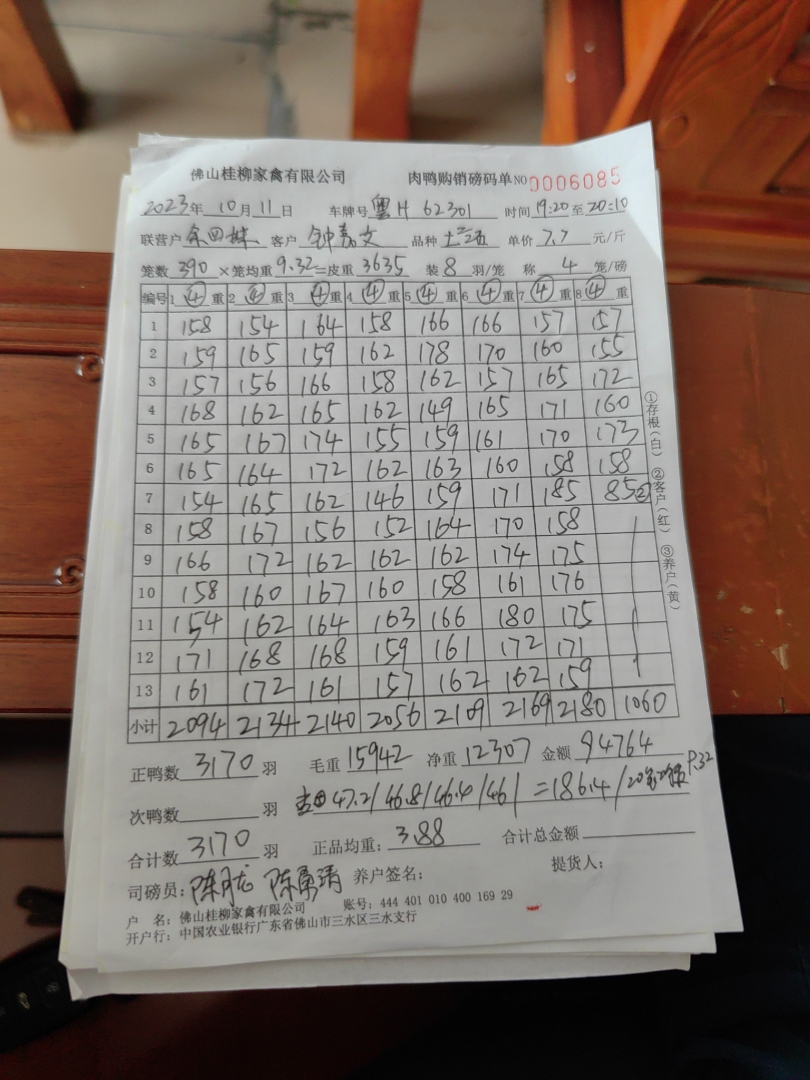 佛山桂柳家禽有限公司 肉鸭购销磅码单 NO 0006085
2023年 10月 11日 车牌号 粤H 62301 时间 19:20 至 20:10
联营户 余四妹 客户 钟嘉文 品种 单价 7.7 元/斤
笼数 390 ×笼均重 9.32 =皮重 3635 装 8 羽/笼 称 4 笼/磅
编号 1 ④ 重 2 ④ 重 3 ④ 重 4 ④ 重 5 ④ 重 6 ④ 重 7 ④ 重 8 ④ 重
1 158 154 164 158 166 166 157 157
2 159 165 159 162 178 170 160 155
3 157 156 166 158 162 157 165 172
4 168 162 165 162 149 165 171 160
5 165 167 174 155 159 161 170 173
6 165 164 172 162 163 160 158 158
7 154 165 162 146 159 171 185 85②
8 158 167 156 152 164 170 158
9 166 172 162 162 162 174 175
10 158 160 167 160 158 161 176
11 154 162 164 163 166 180 175
12 171 168 168 159 161 172 171
13 161 172 161 157 162 162 159
小计 2094 2134 2140 2056 2109 2169 2180 1060
①存根(白) ②客户(红) ③养户(黄)
正鸭数 3170 羽 毛重 15942 净重 12307 金额 94764
次鸭数 羽 47.2/46.8/46.4/46/=186.4/20 9.32
合计数 3170 羽 正品均重: 3.88 合计总金额
司磅员: 养户签名: 提货人:
户 名: 佛山桂柳家禽有限公司 账号: 444 401 010 400 169 29
开户行: 中国农业银行广东省佛山市三水区三水支行